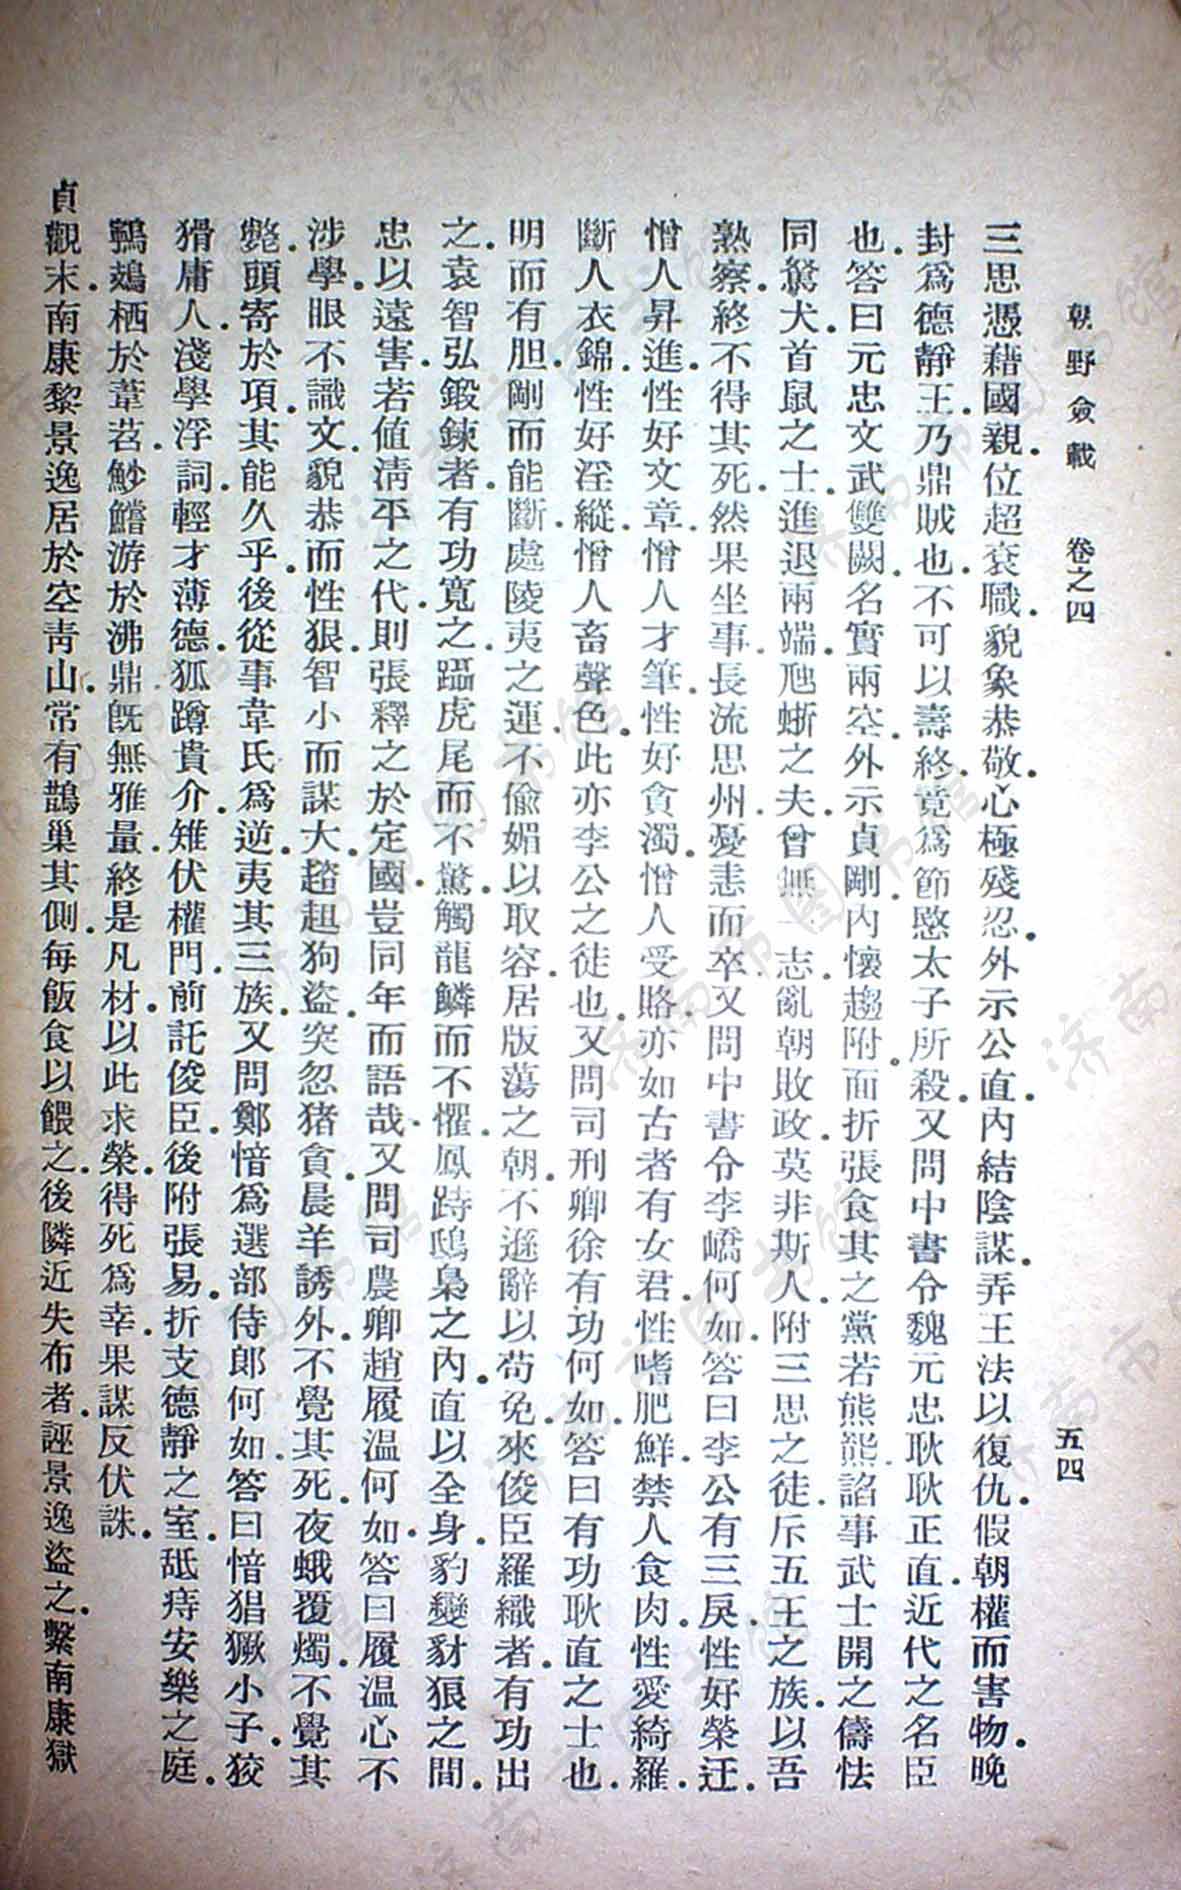 朝野僉載 卷之四 五四
三思憑藉國親．位超袞職．貌象恭敬．心極殘忍．外示公直．內結陰謀．弄王法以復仇．假朝權而害物．晚
封爲德靜王．乃鼎賊也．不可以壽終．竟爲節愍太子所殺．又問中書令魏元忠耿耿正直．近代之名臣
也．答曰元忠文武雙闕．名實兩空．外示貞剛．內懷趨附．面折張食其之黨．若熊羆．諂事武士開之儔怯
同駑犬．首鼠之士．進退兩端．虺蜥之夫．曾無一志．亂朝敗政．莫非斯人．附三思之徒．斥五王之族．以吾
熟察．終不得其死．然果坐事．長流思州．憂恚而卒．又問中書令李嶠何如．答曰李公有三戾．性好榮迁．
憎人昇進．性好文章．憎人才筆．性好貪濁．憎人受賂．亦如古者有女君．性嗜肥鮮．禁人食肉．性愛綺羅．
斷人衣錦．性好淫縱．憎人畜聲色．此亦李公之徒也．又問司刑卿徐有功何如．答曰有功耿直之士也．
明而有胆．剛而能斷．處陵夷之運．不偸媚以取容．居版蕩之朝．不遜辭以苟免．來俊臣羅織者．有功出
之．袁智弘鍛鍊者．有功寬之．躡虎尾而不驚．觸龍鱗而不懼．鳳跱鴟梟之內．直以全身．豹變豺狼之間．
忠以遠害．若値淸平之代．則張釋之於定國．豈同年而語哉．又問司農卿趙履温何如．答曰履温心不
涉學．眼不識文．貌恭而性狠．智小而謀大．趦趄狗盜．突忽猪貪．晨羊誘外．不覺其死．夜蛾覆燭．不覺其
斃．頭寄於項．其能久乎．後從事韋氏爲逆．夷其三族．又問鄭愔爲選部侍郞何如．答曰愔猖獗小子．狡
猾庸人．淺學浮詞．輕才薄德．狐蹲貴介．雉伏權門．前託俊臣．後附張易．折支德靜之室．舐痔安樂之庭．
鸋鴂栖於葦苕．魦鱨游於沸鼎．旣無雅量．終是凡材．以此求榮．得死爲幸．果謀反伏誅．
貞觀末．南康黎景逸居於空靑山．常有鵲巢其側．每飯食以餵之．後隣近失布者．誣景逸盜之．繫南康獄